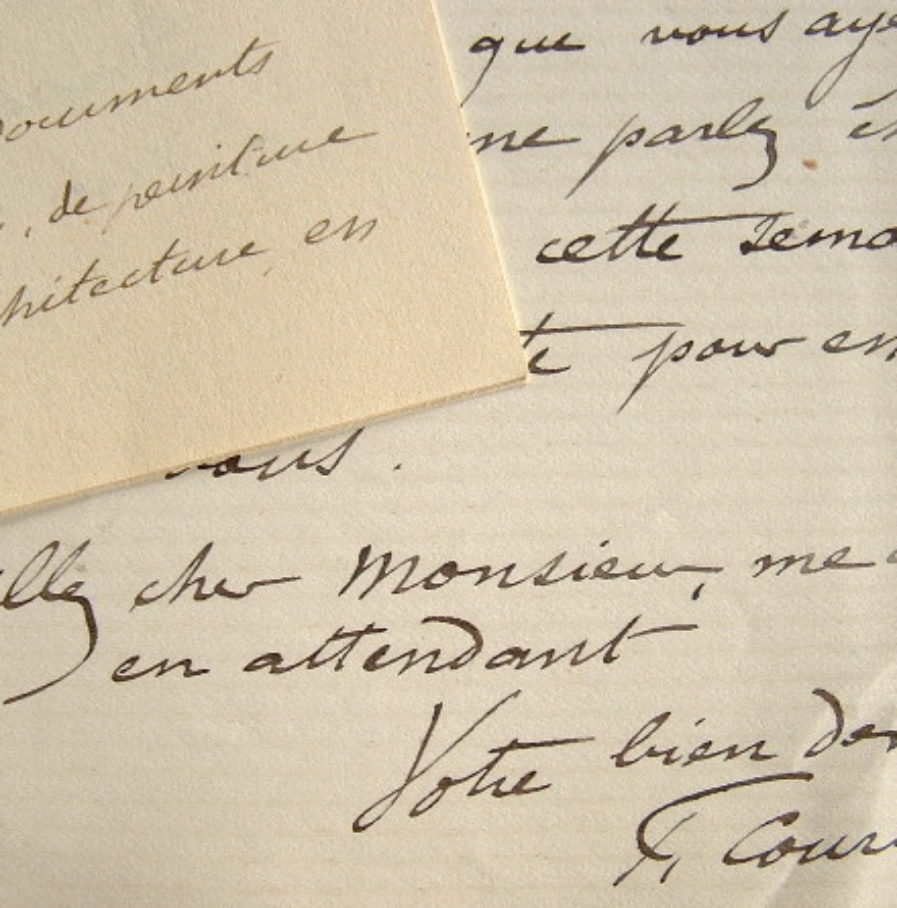 Documents
de peinture
hitecture, en
que vous aye
me parlez
cette sema
te pour en
vous.
illez cher Monsieur, me
en attendant
Votre bien dev
Cour